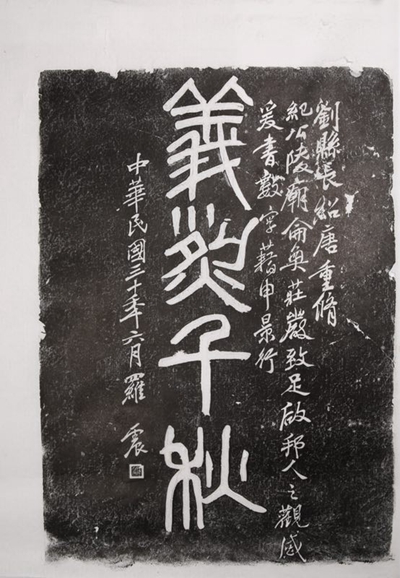 劉縣長紹唐重脩
紀公陵廟侖奐莊嚴致足啟邦人之觀感
爰書數字藉申景行
義烈千秋
中華民國三十年六月羅震